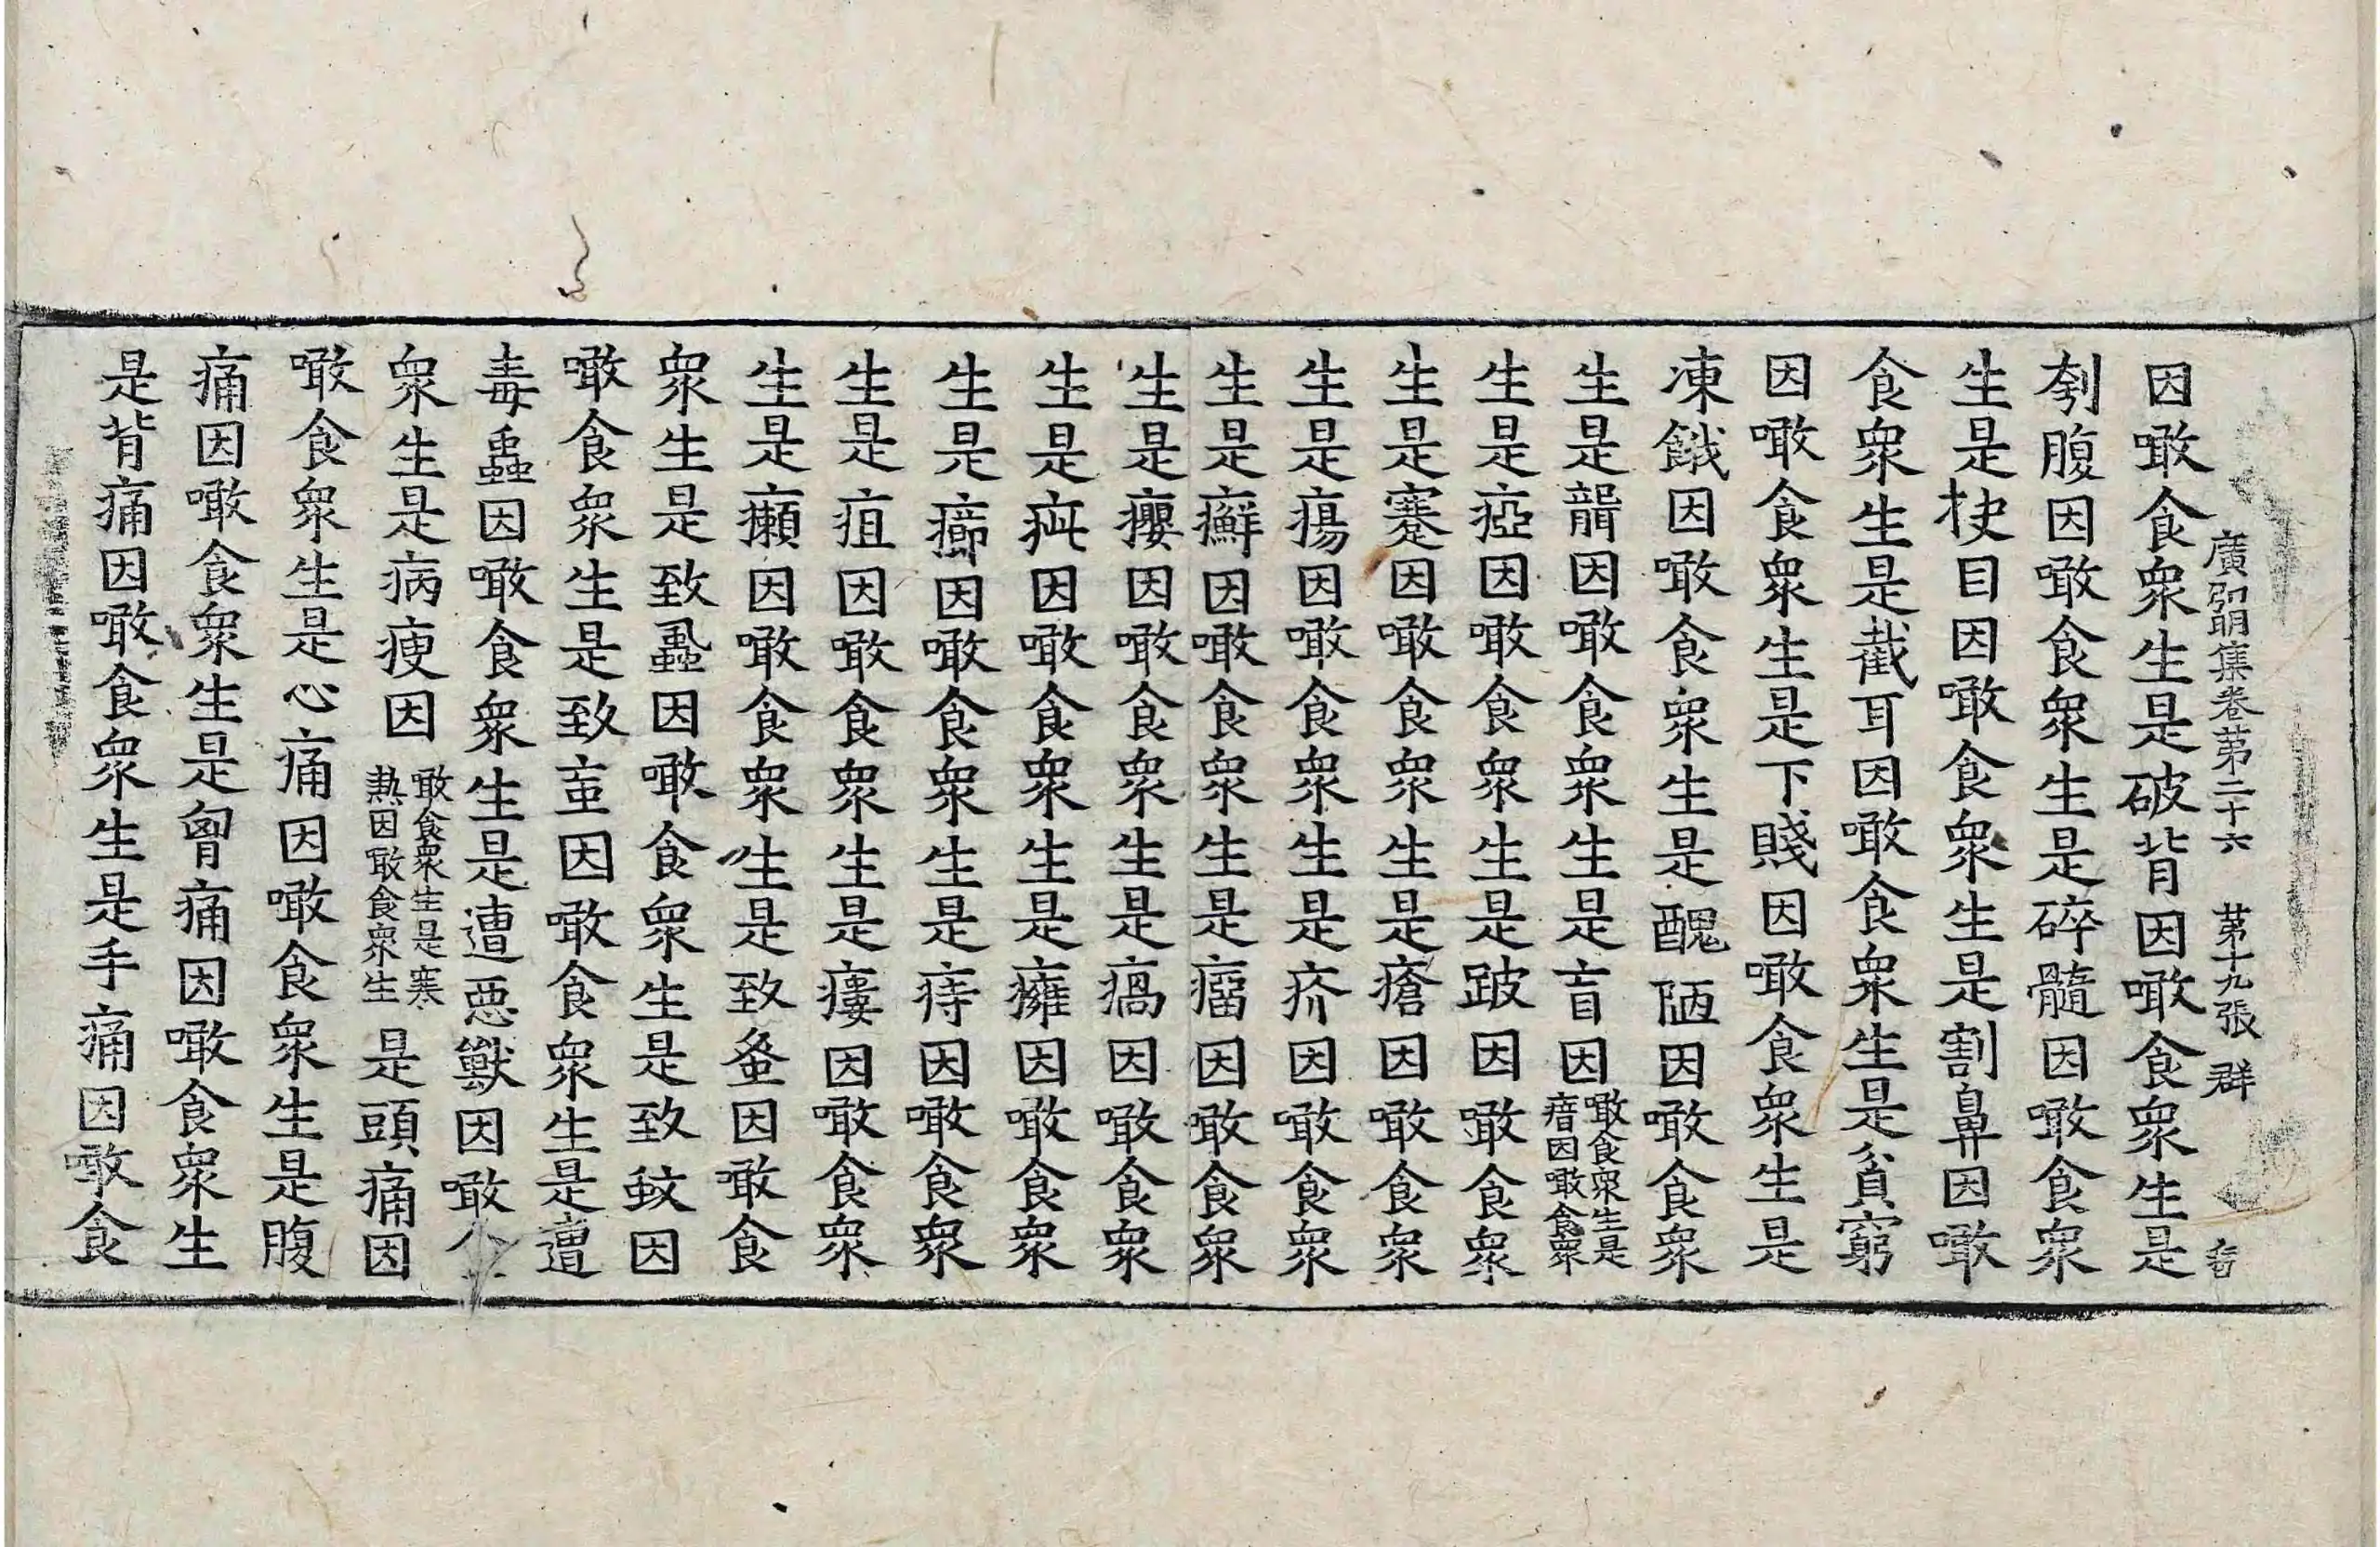 廣弘明集卷第二十六　第十九張　群
因噉食衆生是破背因噉食衆生是
刳腹因噉食衆生是碎髓因噉食衆
生是抉目因噉食衆生是割鼻因噉
食衆生是截耳因噉食衆生是貧窮
因噉食衆生是下賤因噉食衆生是
凍餓因噉食衆生是醜陋因噉食衆
生是聾因噉食衆生是盲因噉食衆生是瘖因噉食衆
生是瘂因噉食衆生是跛因噉食衆
生是蹇因噉食衆生是瘡因噉食衆
生是瘍因噉食衆生是疥因噉食衆
生是癬因噉食衆生是瘤因噉食衆
生是癭因噉食衆生是瘑因噉食衆
生是疵因噉食衆生是癰因噉食衆
生是癤因噉食衆生是痔因噉食衆
生是疽因噉食衆生是瘻因噉食衆
生是癩因噉食衆生是致蚤因噉食
衆生是致蝨因噉食衆生是致蚊因
噉食衆生是致䖟因噉食衆生是遭
毒蟲因噉食衆生是遭惡獸因噉
衆生是病瘦因噉食衆生是寒熱因噉食衆生是頭痛因
噉食衆生是心痛因噉食衆生是腹
痛因噉食衆生是胷痛因噉食衆生
是背痛因噉食衆生是手痛因噉食